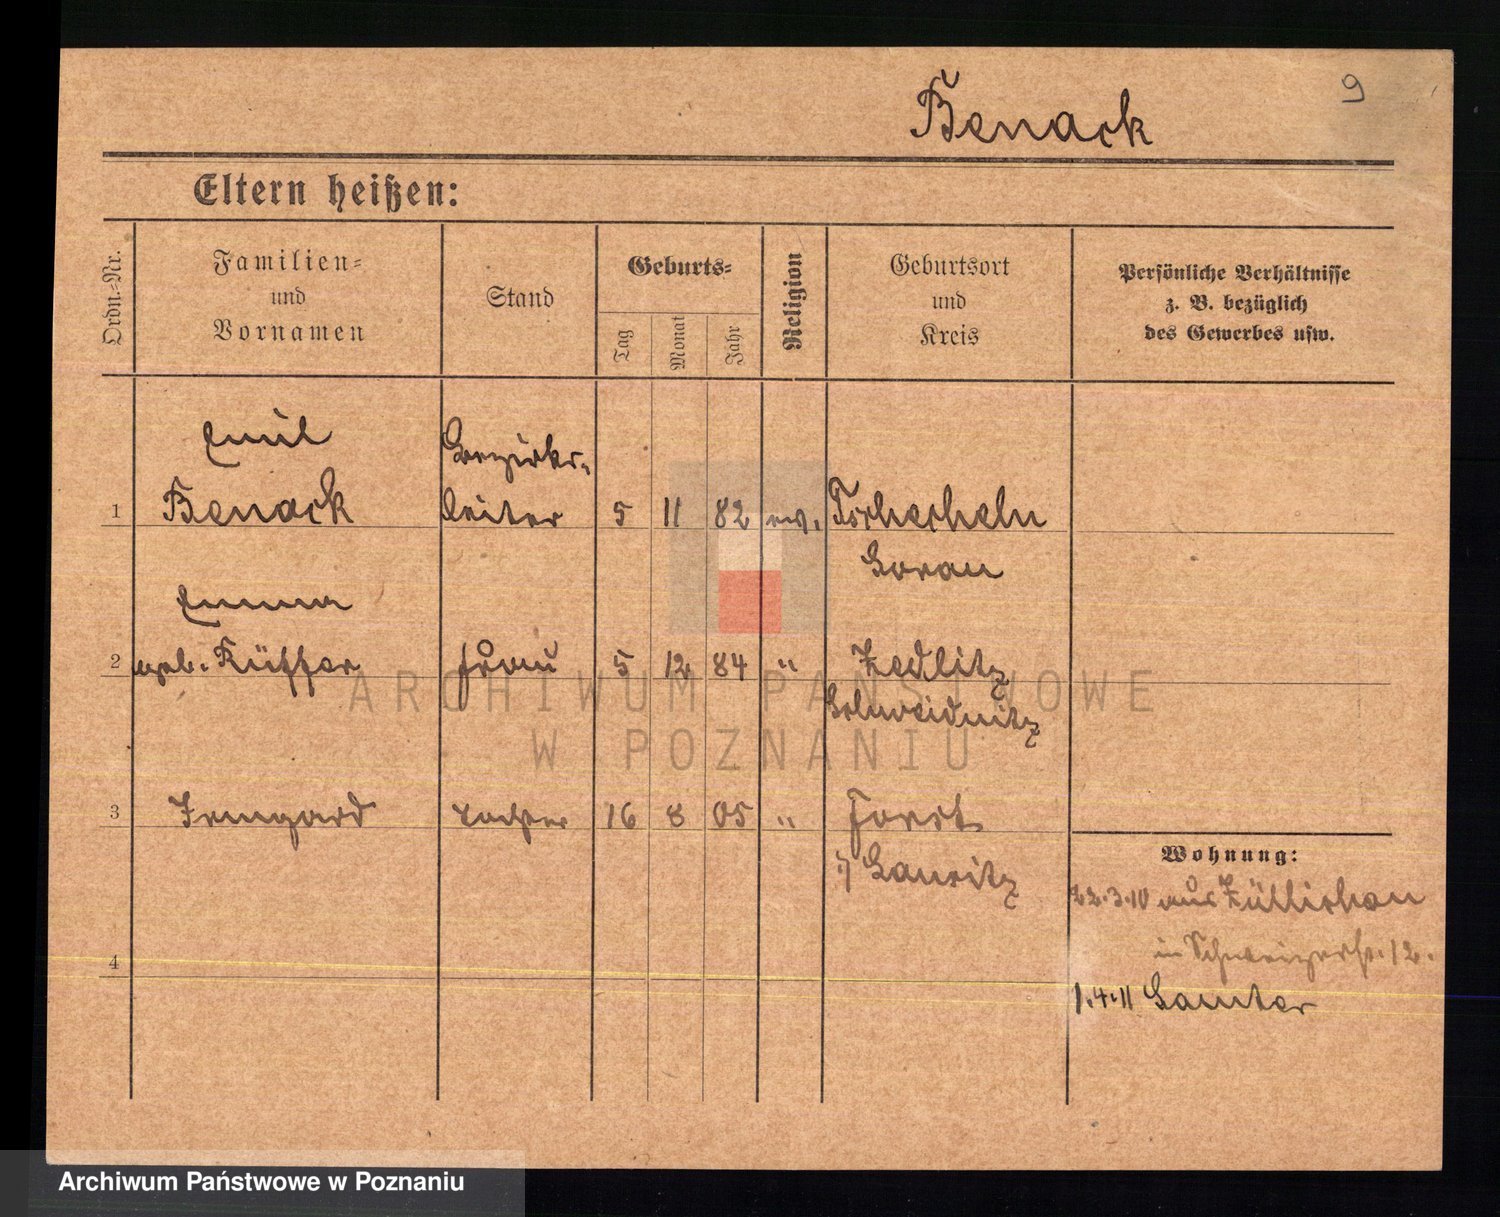 9
Benack
Eltern heißen:
Ordn.-Nr.
Familien-
und
Vornamen
Stand
Geburts-
Tag
Monat
Jahr
Religion
Geburtsort
und
Kreis
Persönliche Verhältnisse
z. B. bezüglich
des Gewerbes usw.
Emil
Bezirks-
1 Benack leiter 5 11 82 ev. Tschecheln
Sorau
Emma
2 geb. Küffer Frau 5 12 84 " Zedlitz
Schweidnitz
3 Irmgard Tochter 16 8 05 " Forst
Wohnung:
22.3.10 aus Züllichau
in Schweizerstr. 12.
4
1.4.11 Samter
ARCHIWUM PAŃSTWOWE
W POZNANIU
Archiwum Państwowe w Poznaniu